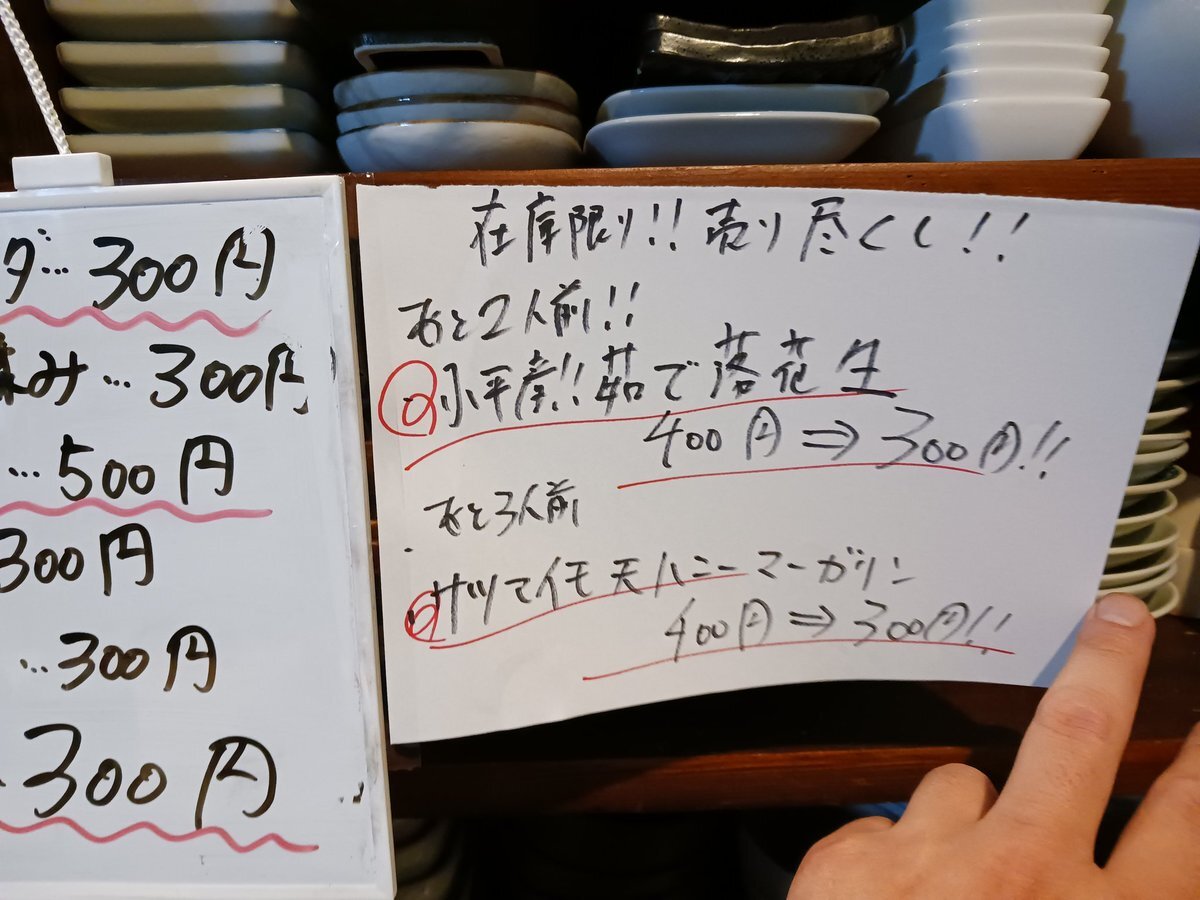 ダ…300円
み…300円
…500円
300円
…300円
300円
在庫限り!!売り尽くし!!
あと2人前!!
小平産!!茹で落花生
400円⇒300円!!
あと3人前
サツマイモ天ハニーマーガリン
400円⇒300円!!